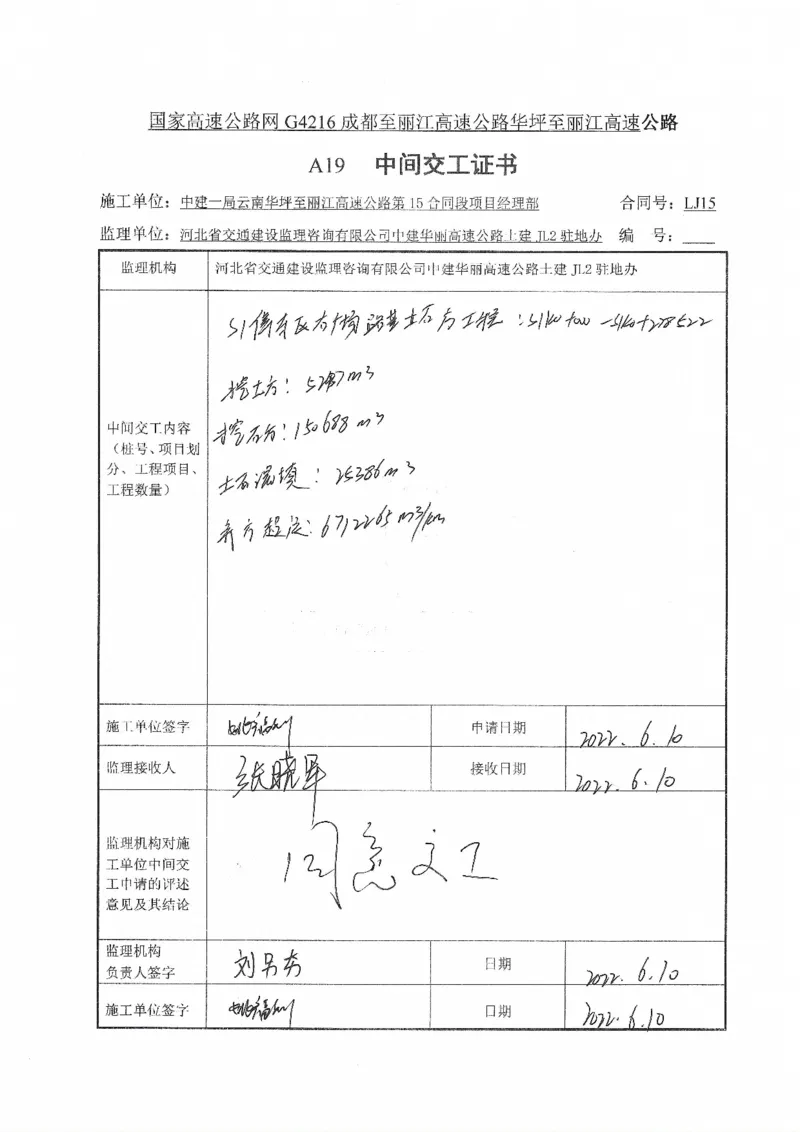 国家高速公路网 G4216 成都至丽江高速公路华坪至丽江高速公路
A19 中间交工证书
施工单位：中建一局云南华坪至丽江高速公路第 15 合同段项目经理部 合同号：LJ15
监理单位：河北省交通建设监理咨询有限公司中建华丽高速公路土建 JL2 驻地办 编 号：
监理机构 河北省交通建设监理咨询有限公司中建华丽高速公路土建 JL2 驻地办
路基土石方工程：
挖土方： m3
挖石方：150688 m3
中间交工内容
（桩号、项目划
分、工程项目、
工程数量）
土石混填：25386 m3
弃方超运：6712265 m3/km
施工单位签字 申请日期 2022.6.10
监理接收人 张晓军 接收日期 2022.6.10
监理机构对施
工单位中间交
工申请的评述
意见及其结论
同意交工
监理机构
负责人签字 日期 2022.6.10
施工单位签字 日期 2022.6.10